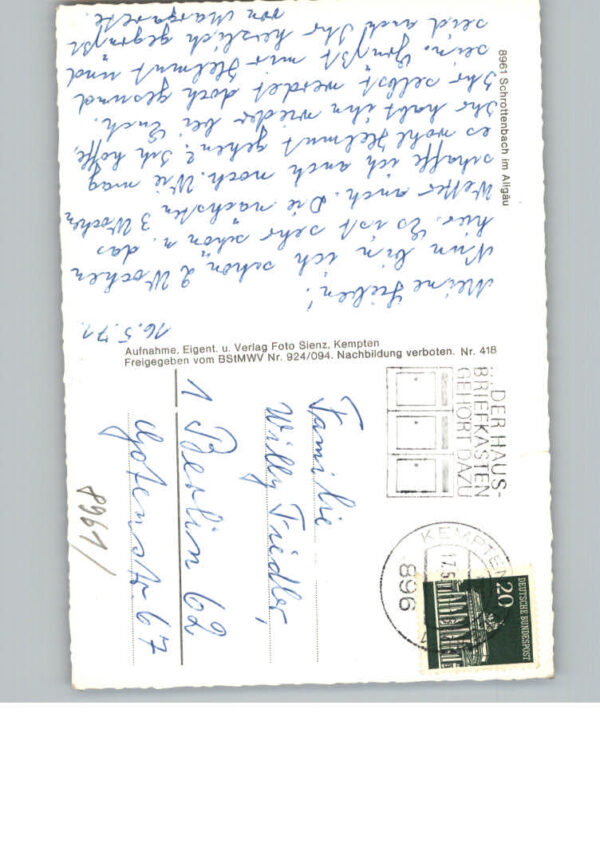 8961 Schrottenbach im Allgäu
16.5.71.
Meine Lieben!
Nun bin ich schon 2 Wochen
hier. Es ist sehr schön u. das
Wetter auch. Die nächsten 3 Wochen
schaffe ich auch noch. Wie mag
es wohl Helmut gehen? Ich hoffe,
Ihr habt ihn wieder bei Euch.
Ihr selbst werdet doch gesund
sein. Grüßt mir Helmut und
seid auch Ihr herzlich gegrüßt
von Margarete.
Aufnahme, Eigent. u. Verlag Foto Sienz, Kempten
Freigegeben vom BStMWV Nr. 924/094. Nachbildung verboten. Nr. 418
... DER HAUS-
BRIEFKASTEN
GEHÖRT DAZU
KEMPTEN
17.5
896
20
DEUTSCHE BUNDESPOST
Familie
Willy Fiedler,
1 Berlin 62
Gotenstr. 67
8961/